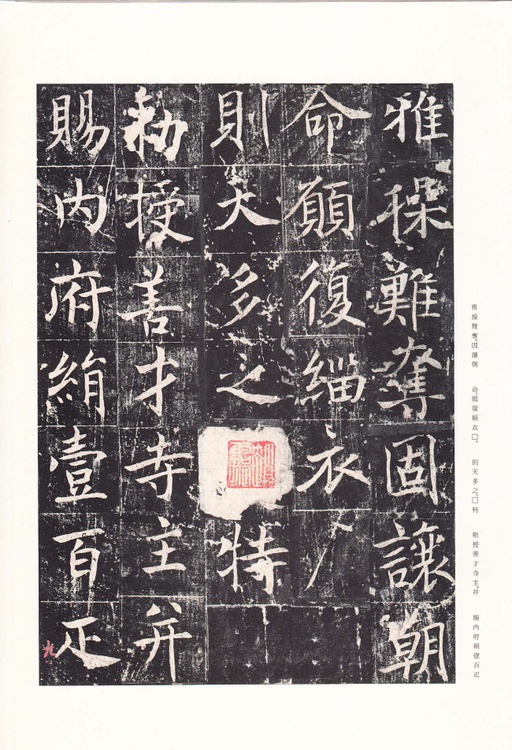 雅操難奪固讓朝
命願復緇衣
則天多之特
勑授善才寺主并
賜内府絹壹百疋
九
雅操難奪固讓朝 命願復緇衣□。 則天多之□特 勑授善才寺主并 賜内府絹壹百疋